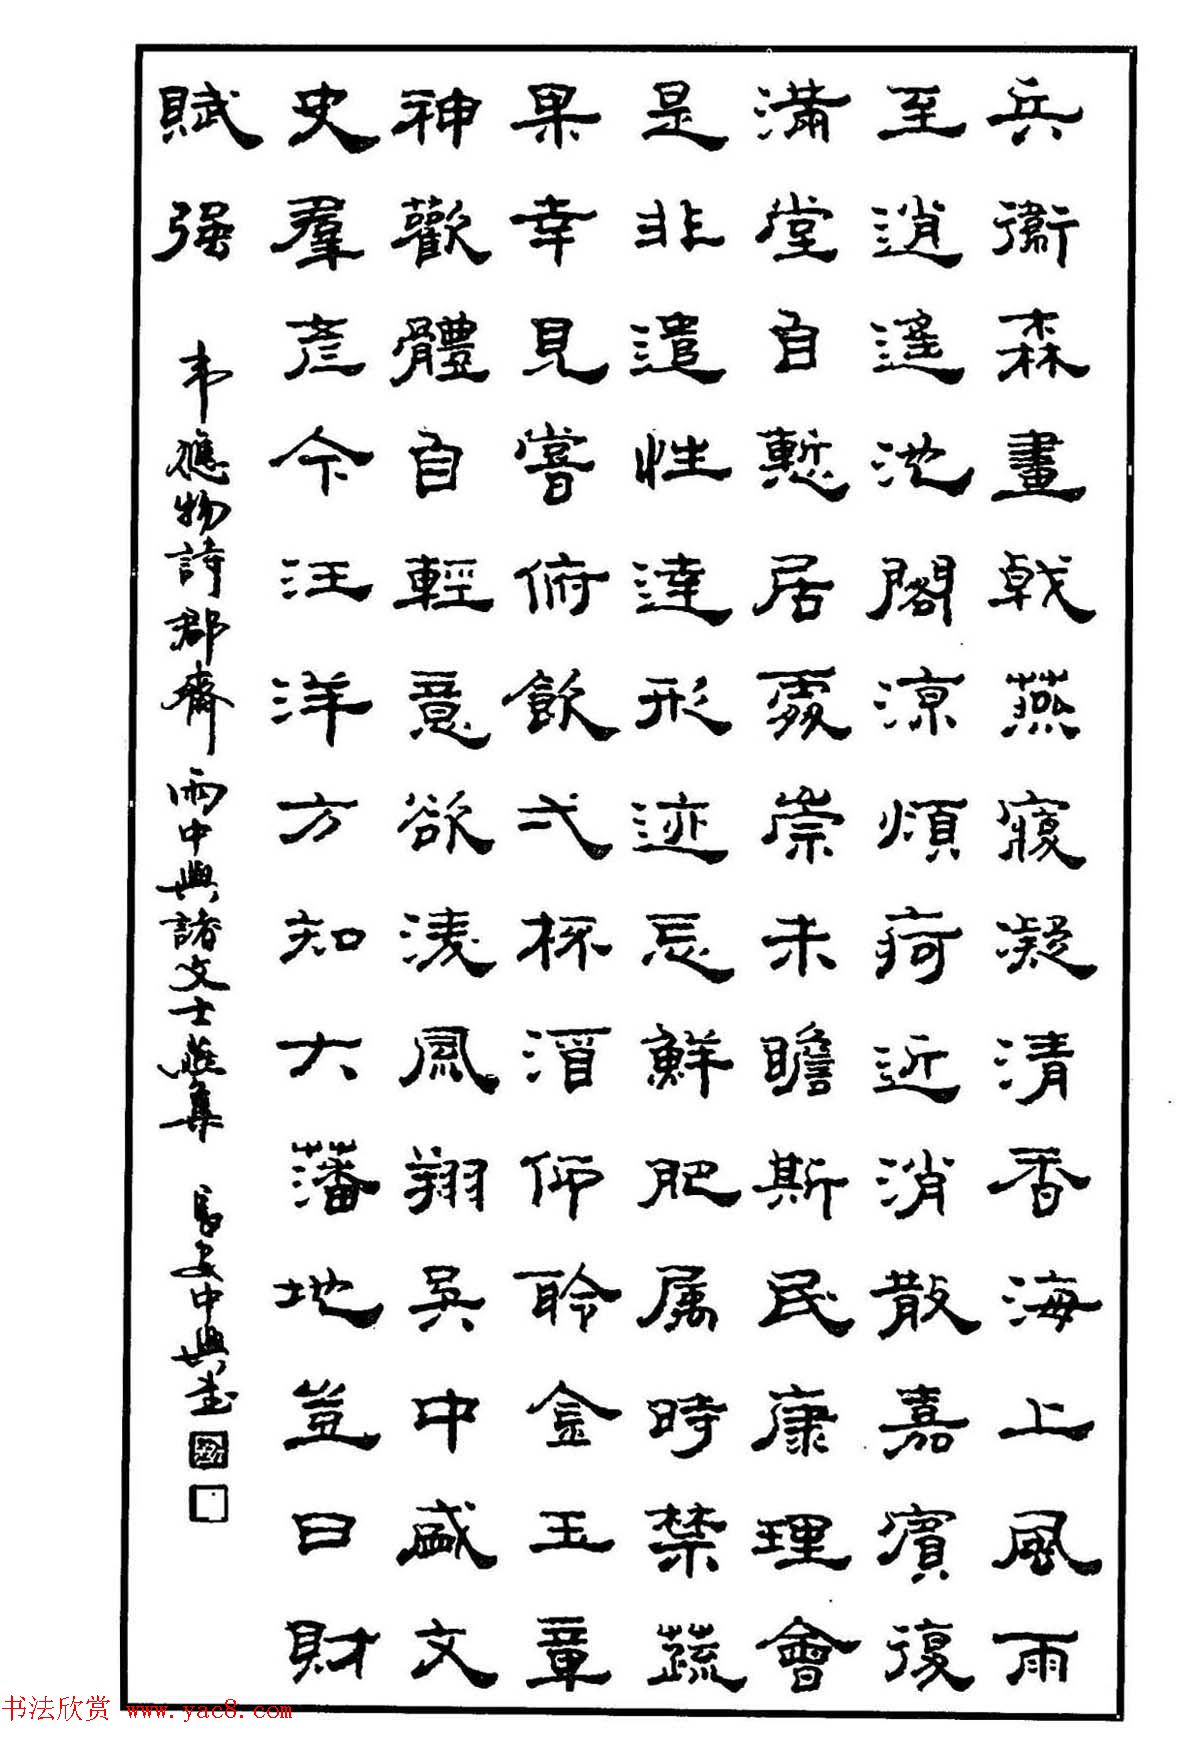 兵衛森畫戟燕寢凝清香海上風雨
至逍遙池閣涼煩疴近消散嘉賓復
滿堂自慙居處崇未瞻斯民康理會
是非遣性達形迹忘鮮肥属時禁蔬
果幸見嘗俯飲弌杯酒仰聆金玉章
神歡體自輕意欲淩風翔吳中盛文
史羣彥今汪洋方知大藩地豈曰財
賦强
韦應物詩郡齋雨中與諸文士燕集 長安中興書
书法欣赏 www.yac8.com